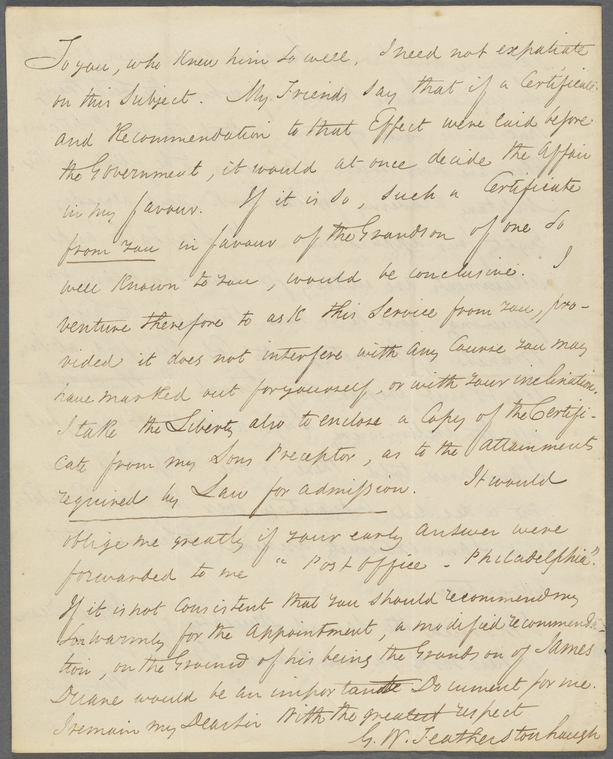 To you, who knew him so well, I need not expatiate
on this Subject. My Friends say that if a Certificate
and Recommendation to that Effect were laid before
the Government, it would at once decide the affair
in my favour. If it is so, such a Certificate
from you in favour of the Grandson of one so
well known to you, would be conclusive. I
venture therefore to ask this Service from you, pro-
vided it does not interfere with any Course you may
have marked out for yourself, or with your inclination.
I take the Liberty also to enclose a Copy of the Certifi-
cate from my Sons Preceptor, as to the attainments
required by Law for admission. It would
oblige me greatly if your early answer were
forwarded to me "Post office - Philadelphia".
If it is not Consistent that you should recommend my
Son warmly for the appointment, a modified recommenda-
tion, on the Ground of his being the Grandson of James
Duane would be an important Document for me.
I remain my Dear Sir With the greatest respect
G. W. Featherstonhaugh